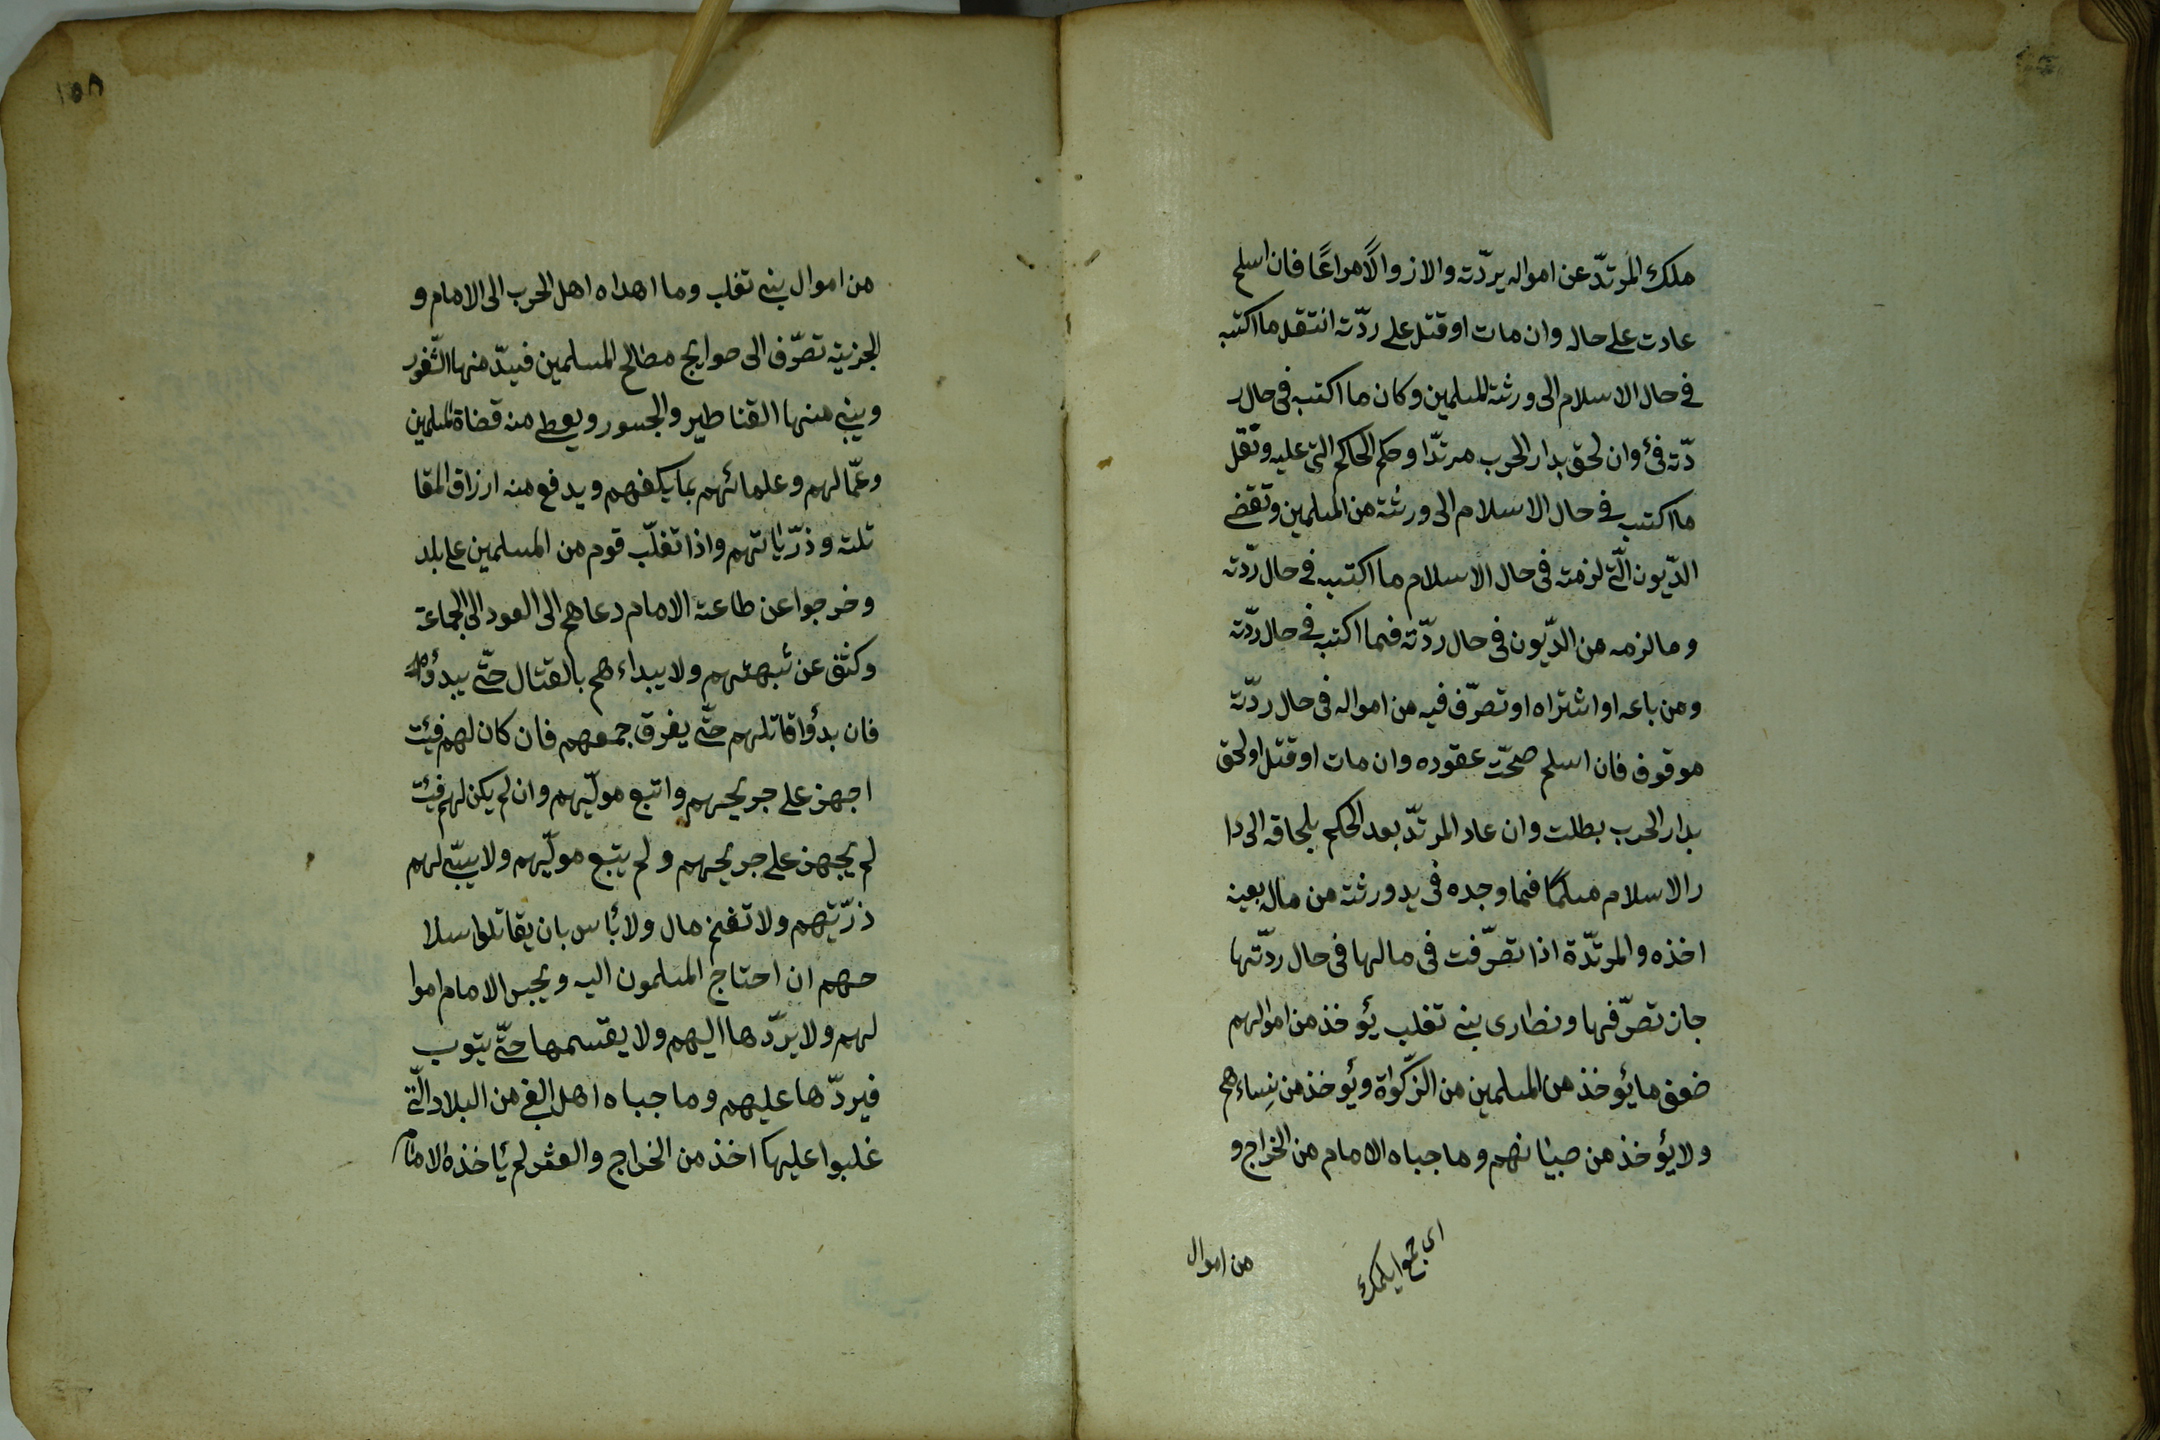 ملك المرتدّ عن امواله بردّته والازوالًا مراعًا فان اسلم
عادت على حاله وان مات او قتل على ردّته انتقل ما اكتسبه
فى حال الاسلام الى ورثة المسلمين وكان ما اكتسبه فى حال ر
دّته فئ وان لحق بدار الحرب مرتدّا وحكم الحاكم التى عليه ونقل
ما اكتسب فى حال الاسلام الى ورثته من المسلمين وتقضى
الدّيون الّتى لزمته فى حال الاسلام ما اكتسبه فى حال ردّته
وما لزمه من الدّيون فى حال ردّته فمما اكتسبه فى حال ردّته
ومن باعه او اشتراه او تصرّف فيه من امواله فى حال ردّته
موقوف فان اسلم صحّت عقوده وان مات او قتل او لحق
بدار الحرب بطلت وان عاد المرتدّ بعد الحكم بلحاقه الى دا
ر الاسلام مسلمًا فما وجده فى يد ورثته من مال بعينه
اخذه والمرتدّة اذا تصرّفت فى مالها فى حال ردّتها
جاز تصرّفها ونصارى بنى تغلب يؤخذ من اموالهم
ضعف ما يؤخذ من المسلمين من الزّكوٰة ويؤخذ من نساءهم
ولا يؤخذ من صبيانهم وما جباه الامام من الخراج و
من اموال
١٥٨
من اموال بنى تغلب وما اهداه اهل الحرب الى الامام و
الجزية تصرّف الى حوايج مصالح المسلمين فيسدّ منها الثّغور
ويبنى منها القناطير والجسور ويعطى منه قضاة المسلمين
وعمّالهم وعلمائهم بما يكفيهم ويدفع منه ارزاق المقا
تلة وذرّياتهم واذا تغلّب قوم من المسلمين على بلد
وخرجوا عن طاعة الامام دعاهم الى العود الى الجماعة
وكشف عن شبهتهم ولا يبداءهم بالقتال حتّى يبدؤه
فان بدؤا قاتلهم حتّى يفرق جمعهم فان كان لهم فيئت
اجهز على جريحهم واتبع مولّيهم وان لم يكن لهم فيئت
لم يجهز على جريحهم ولم يتبع مولّيهم ولا يسبّى لهم
ذرّيتهم ولا تغنم مال ولا بأس بان يقاتلوا سلا
حهم ان احتاج المسلمون اليه ويحبس الامام اموا
لهم ولا يردّها اليهم ولا يقسمها حتّى يتوب
فيردّها عليهم وما جباه اهل البغى من البلاد الّتى
غلبوا عليها اخذ من الخراج والعشر لم يأخذه الامام